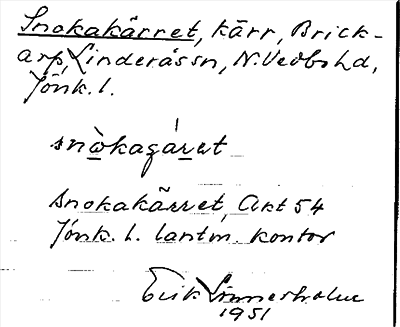 Snokakärret, kärr, Brick-
arp, Linderås sn, N. Vedbo hd,
Jönk. l.
snòkagáret
Snokakärret, Akt 54
Jönk. l. lantm. kontor
Erik Linnerholm
1951